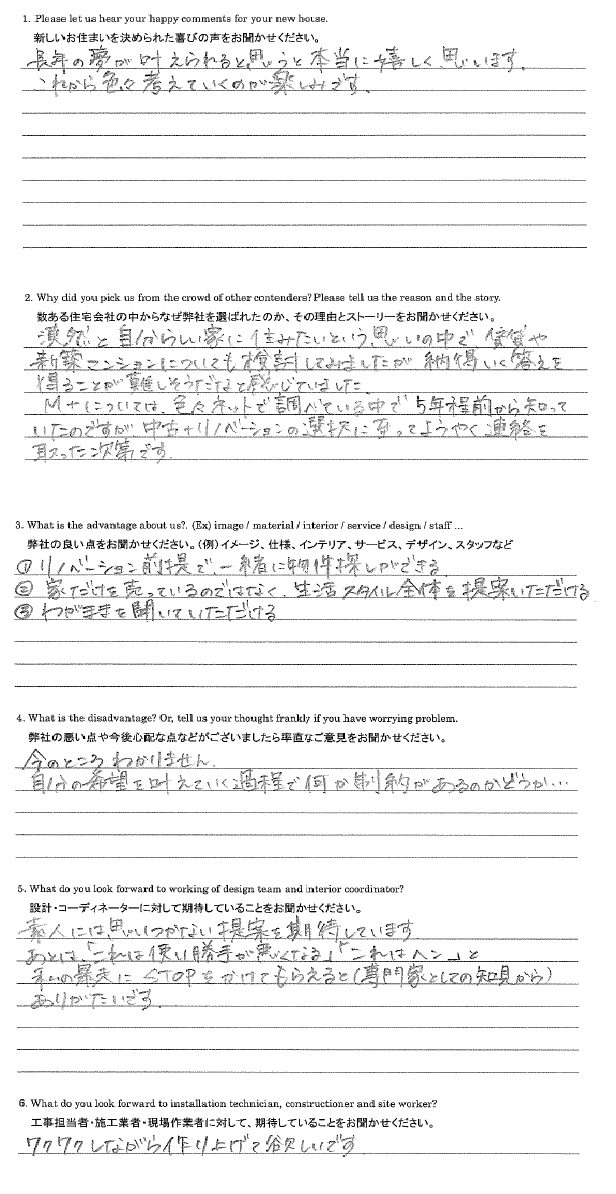 1. Please let us hear your happy comments for your new house.
新しいお住まいを決められた喜びの声をお聞かせください。
長年の夢が叶えられると思うと本当に嬉しく思います。
これから色々考えていくのが楽しみです。
2. Why did you pick us from the crowd of other contenders? Please tell us the reason and the story.
数ある住宅会社の中からなぜ弊社を選ばれたのか、その理由とストーリーをお聞かせください。
漠然と自分らしい家に住みたいという思いの中で賃貸や
新築マンションについても検討してみましたが納得いく答えを
得ることが難しそうだなと感じていました
M+については、色々ネットで調べている中で5年程前から知って
いたのですが中古+リノベーションの選択に至ってようやく連絡を
取った次第です。
3. What is the advantage about us?. (Ex) image / material / interior / service / design / staff ...
弊社の良い点をお聞かせください。(例)イメージ、仕様、インテリア、サービス、デザイン、スタッフなど
① リノベーション前提で、一緒に物件探しができる
② 家だけを売っているのではなく、生活スタイル全体を提案いただける
③ わがままを聞いていただける
4. What is the disadvantage? Or, tell us your thought frankly if you have worrying problem.
弊社の悪い点や今後心配な点などがございましたら率直なご意見をお聞かせください。
今のところわかりません。
自分の希望を叶えていく過程で何か制約があるのかどうか…
5. What do you look forward to working of design team and interior coordinator?
設計・コーディネーターに対して期待していることをお聞かせください。
素人には思いつかない提案を期待しています
あとは「これは使い勝手が悪くなる」「これはヘン」と
私の暴走にSTOPをかけてもらえると(専門家としての知見から)
ありがたいです。
6. What do you look forward to installation technician, constructioner and site worker?
工事担当者・施工業者・現場作業者に対して、期待していることをお聞かせください。
ワクワクしながら作り上げて欲しいです